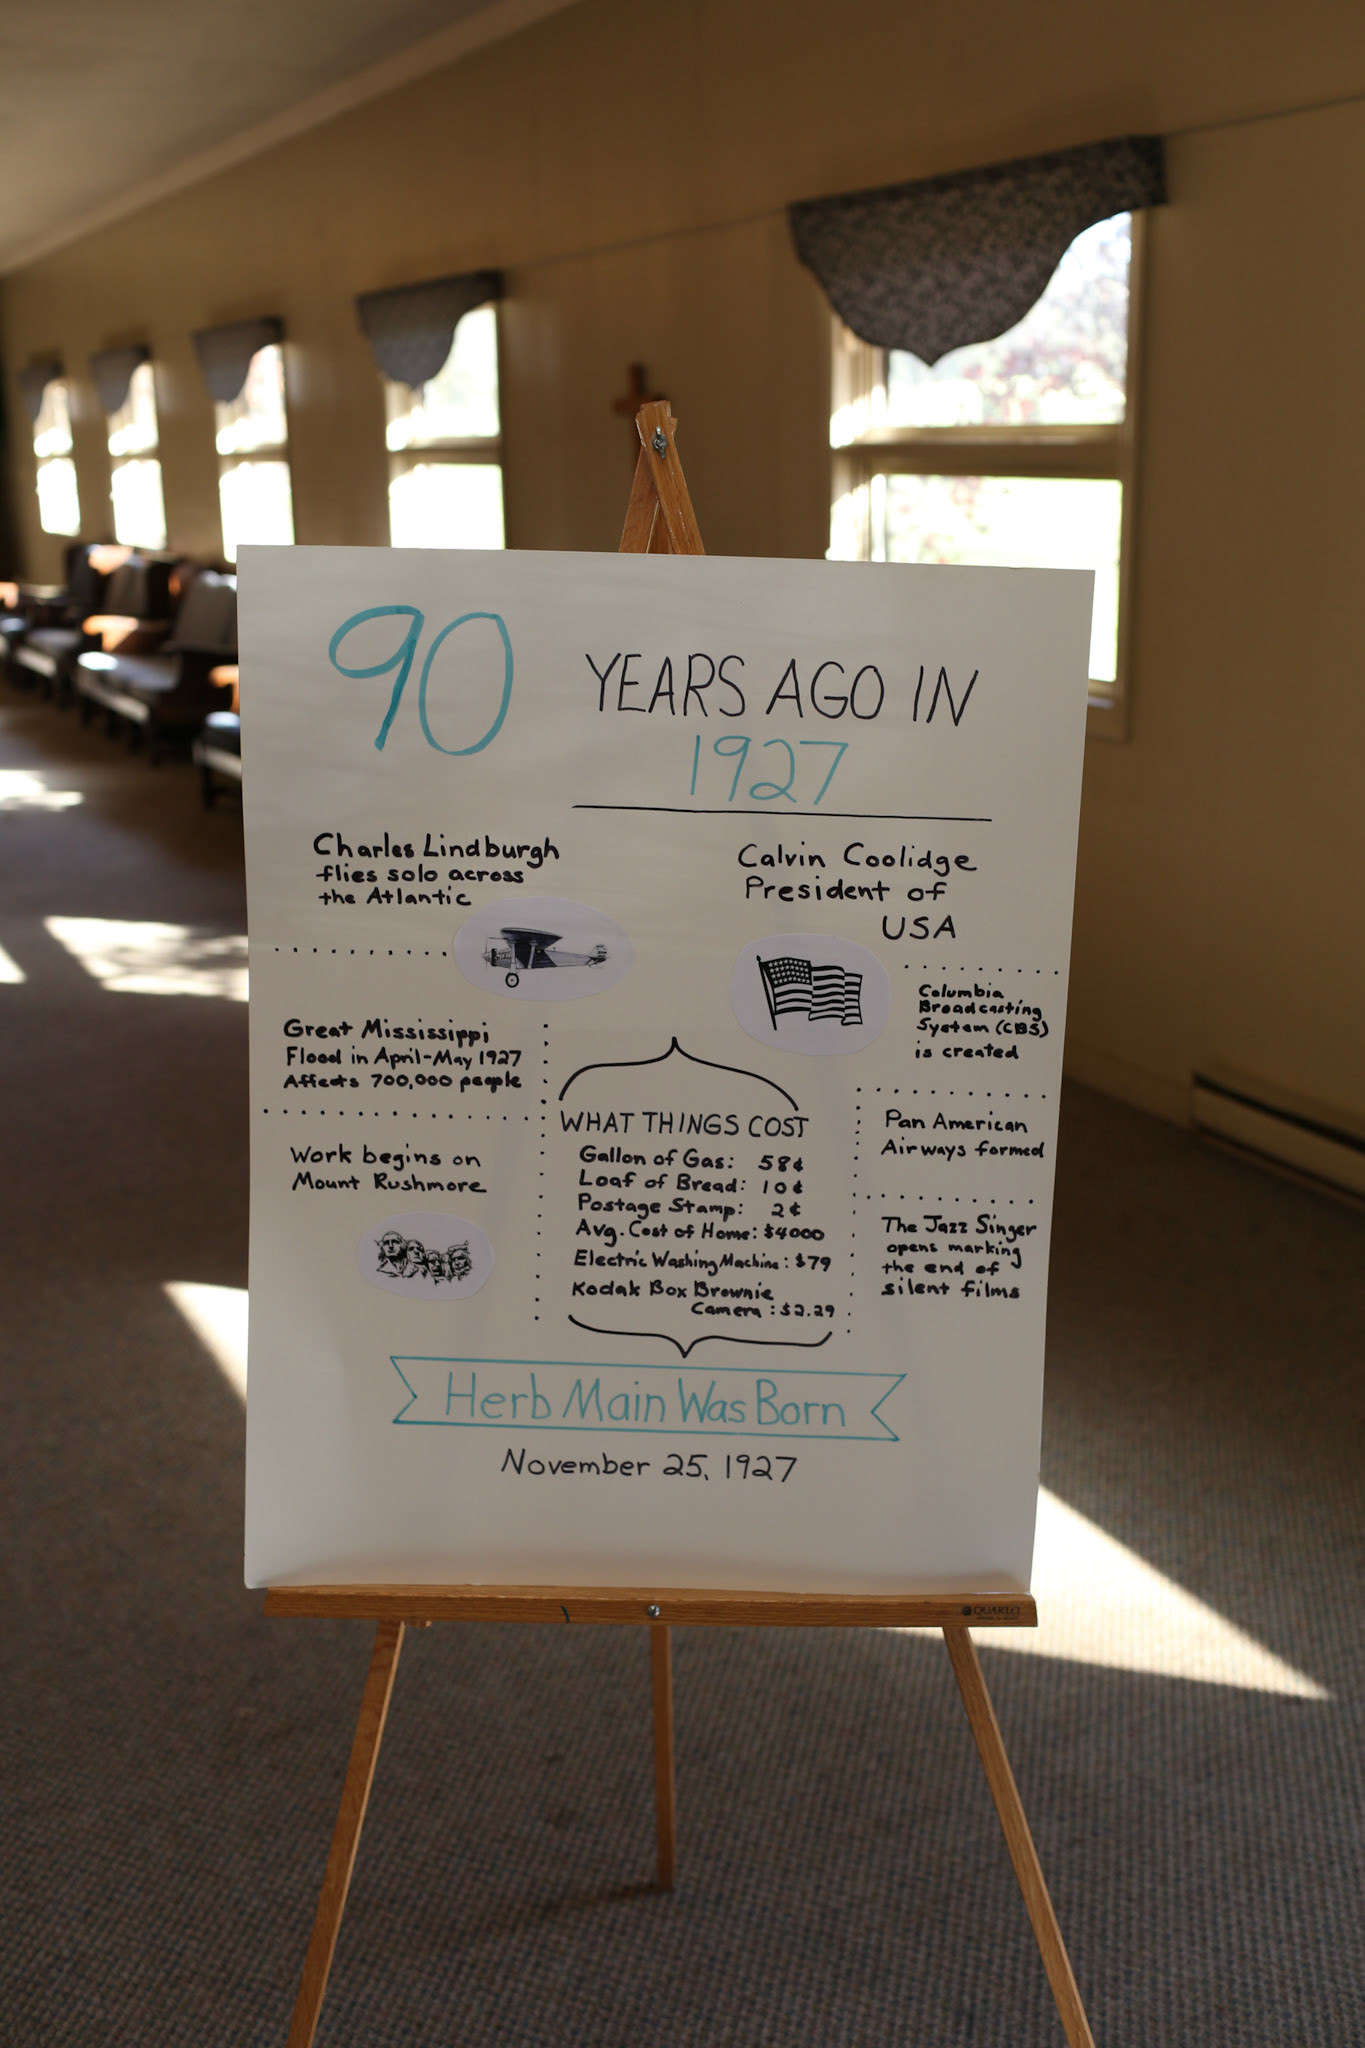 90 YEARS AGO IN
1927
Charles Lindburgh
flies solo across
the Atlantic
Calvin Coolidge
President of
USA
Great Mississippi
Flood in April-May 1927
Affects 700,000 people
Work begins on
Mount Rushmore
Columbia
Broadcasting
System (CBS)
is created
Pan American
Airways formed
The Jazz Singer
opens marking
the end of
silent films
WHAT THINGS COST
Gallon of Gas: 58¢
Loaf of Bread: 10¢
Postage Stamp: 2¢
Avg. Cost of Home: $4000
Electric Washing Machine: $79
Kodak Box Brownie
Camera: $2.29
Herb Main Was Born
November 25, 1927
QUARTET